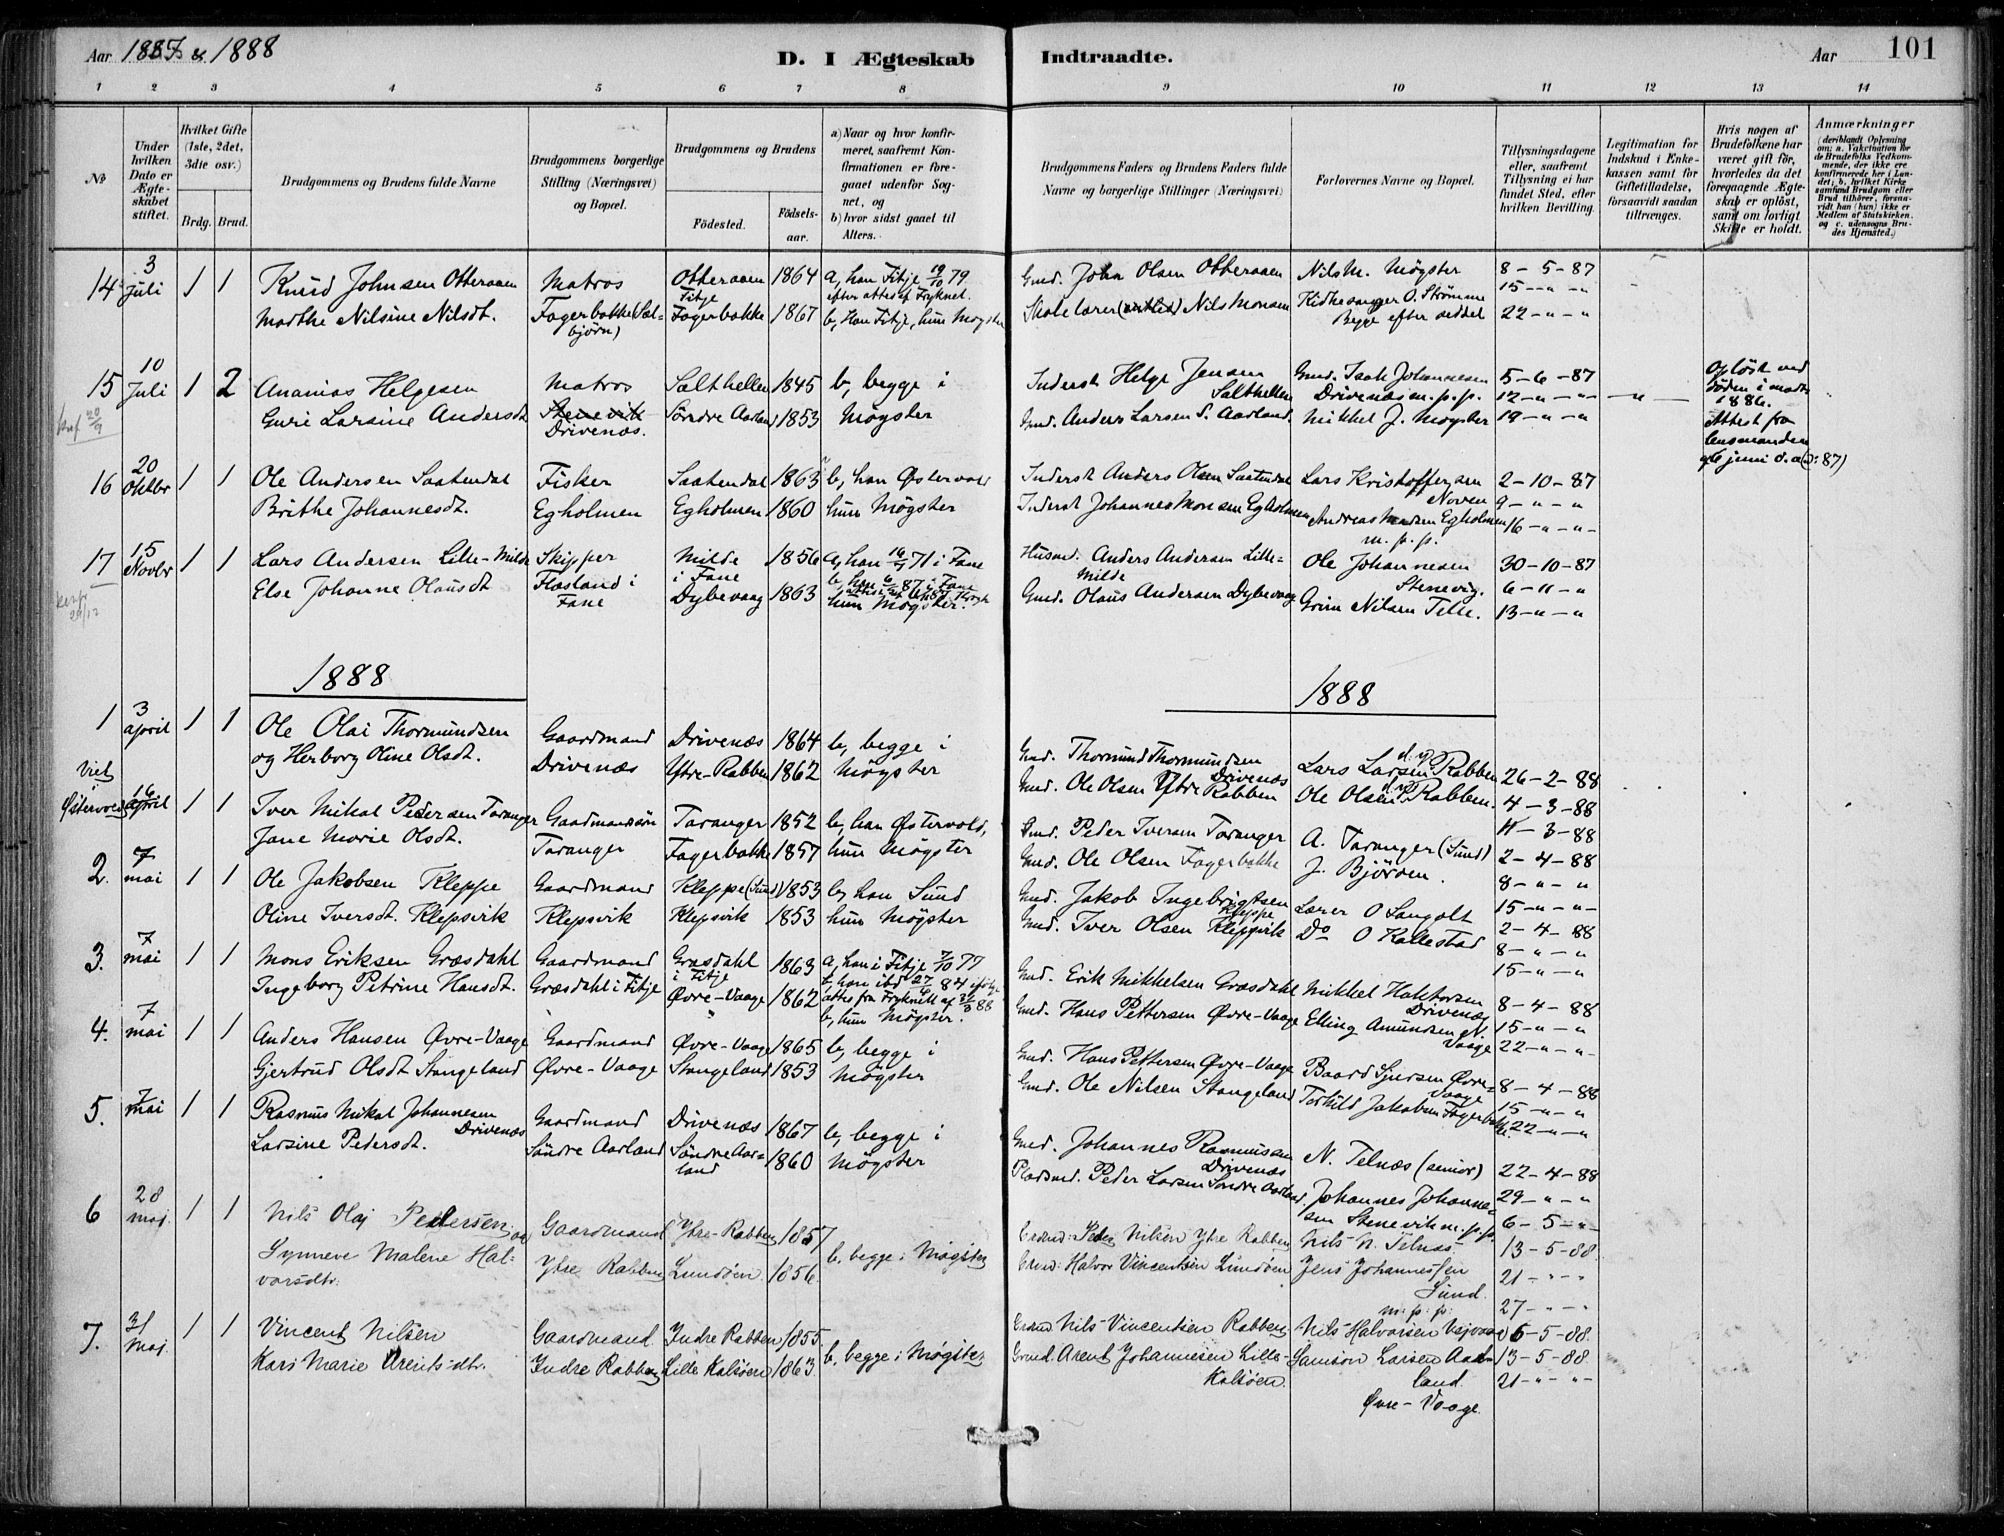 Aar 1887 & 1888
D. I Ægteskab
Indtraadte.
Aar
101
1 2 3 4 5 6 7 8 9 10 11 12 13 14
№
Under hvilken Dato er Ægteskabet stiftet.
Hvilket Gifte (1ste, 2det, 3die osv.)
Brdg. Brud.
Brudgommens og Brudens fulde Navne
Brudgommens borgerlige Stilling (Næringsvei) og Bopæl.
Brudgommens og Brudens
Fødested.
Fødsels-aar.
a) Naar og hvor konfirmeret, saafremt Konfirmationen er foregaaet udenfor Sognet, og
b) hvor sidst gaaet til Alters.
Brudgommens Faders og Brudens Faders fulde Navne og borgerlige Stillinger (Næringsvei)
Forlovernes Navne og Bopæl.
Tillysningsdagene eller, saafremt Tillysning ei har fundet Sted, efter hvilken Bevilling.
Legitimation for Indskud i Enkekassen samt for Giftetilladelse, forsaavidt saadan tiltrænges.
Hvis nogen af Brudefolkene har været gift før, hvorledes da det foregaaende Ægteskab er opløst, samt om lovligt Skifte er holdt.
Anmærkninger
(deriblandt Oplysning om: a. Vakcination for de Brudefolks Vedkommende, der ikke ere konfirmerede her i Landet; b. hvilket Kirkesamfund Brudgom eller Brud tilhører, forsaavidt han (hun) ikke er Medlem af Statskirken. og c. udensogns Brudes Hjemsted.)
14 3 Juli 1 1 Knud Johnsen Otteraaen Matros Otteraaen Fitje 1864 a, han Fitje 19/10 79 Gmd. John Olsen Otteraaen Nils M. Møgster 8-5-87
efter attest af Fryknet. 15-"-"
Marthe Nilsine Nilsdt. Fagerbakke (Selbjørn) Fagerbakke 1867 b, han Fitje, hun Møgster Skolelærer Nils Monsen Kirkesanger O. Strømme 22-"-"
Begge efter seddel
15 10 Juli 1 2 Ananias Helgesen Matros Salthellen 1845 b, begge i Inderst Helge Jensen Salthellen Gmd. Isak Johannesen Drivenæs m.p.p. 5-6-87 Opløst ved
12-"-" -"- døden i
Guri Larsine Andersdt. Stenevik Drivenæs. Søndre Aarland 1853 Møgster Gmd. Anders Larsen S. Aarland. Mikkel J. Møgster 19-"-" 1886.
Attest fra
lensmanden
af 6 juni d.a (o: 87)
16 20 Oktbr 1 1 Ole Andersen Saatendal Fisker Saatendal 1863 b, han Østervold Inderst Anders Olsen Saatendal Lars Kristoffersen Noven 2-10-87
9-"-"
Brithe Johannesdt. Egholmen Egholmen 1860 hun Møgster Inderst Johannes Monsen Egholmen Andreas Madsen Egholmen m.p.p. 16-"-"
17 15 Novbr 1 1 Lars Andersen Lille-Milde Skipper Milde i Fane 1856 a, han 16/4 71 i Fane Husmd. Anders Andersen Lille-Milde Ole Johannesen Stenevig. 30-10-87
6-11-"
Else Johanne Olausdt Flasland i Fane Dybevaag 1863 hun Møgster. Gmd. Olaus Andersen Dybevaag Grim Nilsen Telle. 13-"-"
1888
1888
1 3 april 1 1 Ole Olai Thormundsen Gaardmand Drivenæs 1864 b, begge i Gmd. Thormund Thormundsen Drivenæs Lars Larsen Rabben 26-2-88
og Herborg Oline Olsdt. Drivenæs Ytre-Rabben 1862 Møgster Gmd. Ole Olsen Ytre Rabben Ole Olsen Rabben. 4-3-88
11-3-88
Viet Østervold 16 april 1 1 Iver Mikal Pedersen Taranger Gaardmandssøn Taranger 1852 b, han Østervold, Gmd. Peder Iversen Taranger A. Taranger (Sund) 2-4-88
Jane Marie Olsdt. Taranger Fagerbakke 1857 hun Møgster Gmd. Ole Olsen Fagerbakke J. Bjørøen. 8-"-"
15-"-"
2. 7 mai 1 1 Ole Jakobsen Kleppe Gaardmand Kleppe (Sund) 1853 b, han Sund Gmd. Jakob Ingebrigtsen Kleppe Lærer O Langolt 2-4-88
Oline Iversdt. Klepsvik Klepsvik Klepsvik 1853 hun Møgster Gmd. Iver Olsen Kleppvik Do O Kallestad 8-"-"
15-"-"
3. 7 mai 1 1 Mons Eriksen Græsdahl Gaardmand Græsdahl i Fitje 1863 a, han i Fitje 7/10 77 Gmd. Erik Mikkelsen Græsdahl Mikkel Haktorsen Drivenæs 8-4-88
15-"-"
Ingeborg Petrine Hansdt. Græsdahl i Fitje Øvre-Vaage 1862 b, hun Møgster. Gmd. Hans Pettersen Øvre-Vaage Elling Amundsen N Vaage 22-"-"
4. 7 mai 1 1 Anders Hansen Øvre-Vaage Gaardmand Øvre-Vaage 1865 b, begge i Gmd. Hans Pettersen Øvre-Vaage Baard Sjursen Øvre-Vaage 8-4-88
15-"-"
Gjertrud Olsdt Stangeland Øvre-Vaage Stangeland 1853 Møgster Gmd. Ole Nilsen Stangeland Torkild Jakobsen Fagerbakke 22-"-"
5. 7 mai 1 1 Rasmus Mikal Johannesen Drivenæs Gaardmand Drivenæs 1867 b, begge i Gmd. Johannes Rasmussen Drivenæs N. Telnæs (senior) 22-4-88
29-"-"
Larsine Pedersdt. Søndre Aarland Søndre Aarland 1860 Møgster Pladsmd. Peder Larsen Søndre Aarland Johannes Johannesen Stenevik m.p.p. 6-5-"
6 28 maj. 1 1 Nils Olaj Pedersen og Gaardmand Ytre-Rabben 1857 b, begge i Møgster Grmd: Peder Nilsen Ytre Rabben Nils N. Telnæs 13-5-88.
Synneve Malene Halvorsdtr: Ytre Rabben Lundøen. 1856. Grmd: Halvor Vincentsen Lundøen Jens Johannessen Sund. m:p:p: 21-"-"
27-"-"
7. 31 Maj. 1 1 Vincent Nilsen Gaardmand. Indre Rabben 1855. b. begge i Møgster Grmd Nils Vincentsen Rabben Nils Halvorsen 6-5-88.
Kari Marie Arents-dtr. Indre Rabben Lille Kalsøen 1863. Grmd. Arent Johannesen Lille-Kalsøen. Samson Larsen Aarland 13-5-88.
Øvre-Vaage. 21-"-"